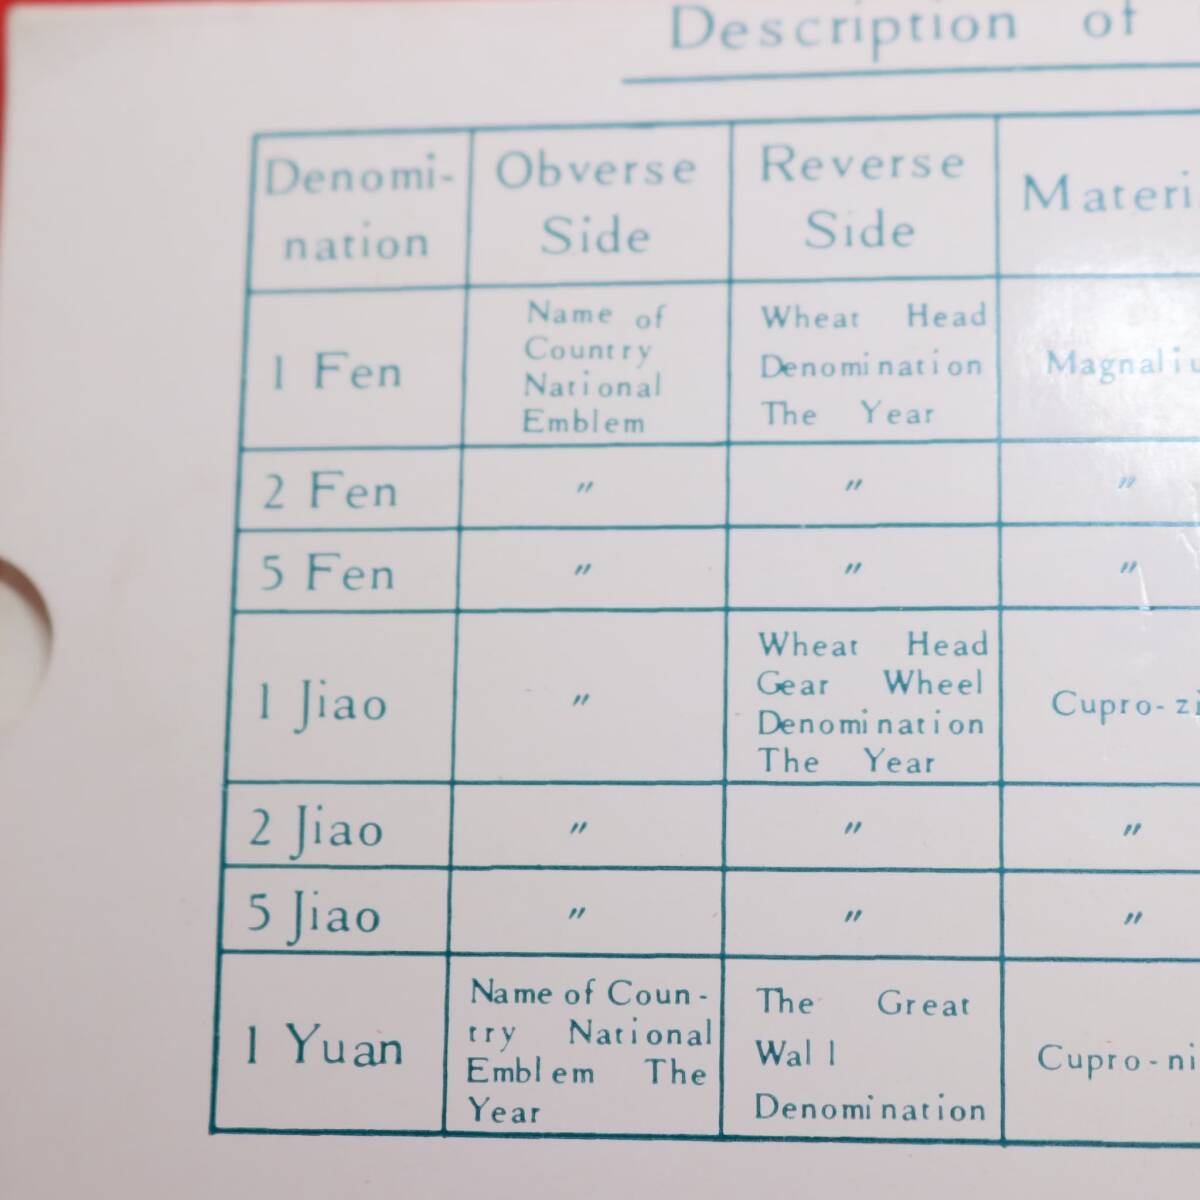 Description of
Denomi-
nation
Obverse
Side
Reverse
Side
1 Fen
Name of
Country
National
Emblem
Wheat Head
Denomination
The Year
2 Fen
〃
〃
〃
5 Fen
〃
〃
〃
1 Jiao
〃
Wheat Head
Gear Wheel
Denomination
The Year
2 Jiao
〃
〃
〃
5 Jiao
〃
〃
〃
1 Yuan
Name of Coun-
try National
Emblem The
Year
The Great
Wall
Denomination